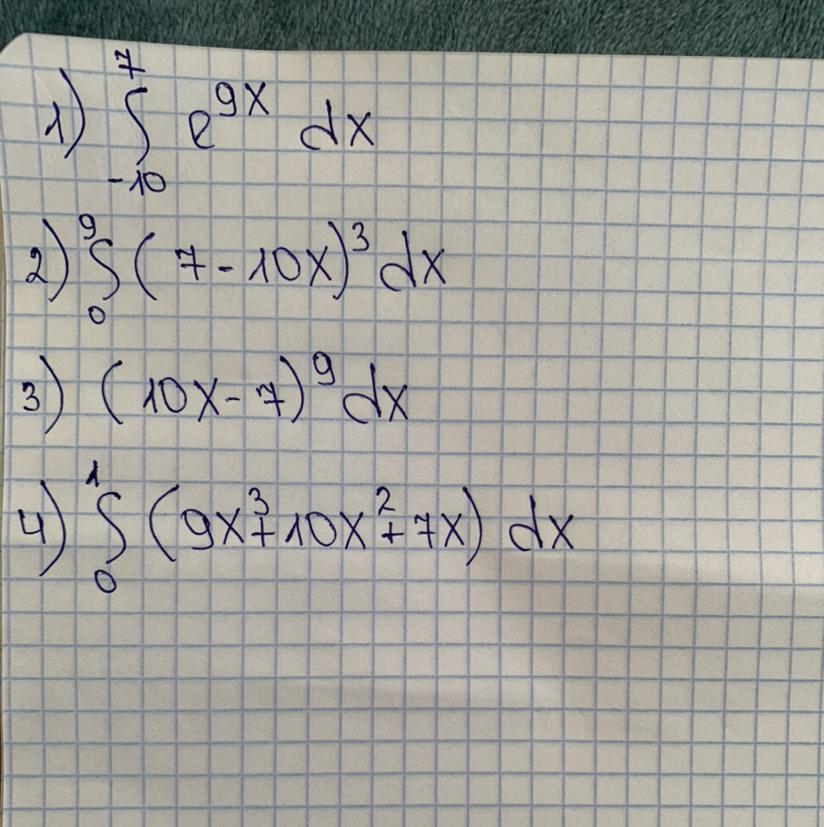 1) ∫_{-10}^{7} e^{9x} dx
2) ∫_{0}^{9} (7-10x)^3 dx
3) (10x-7)^9 dx
4) ∫_{0}^{1} (9x^3+10x^2+7x) dx